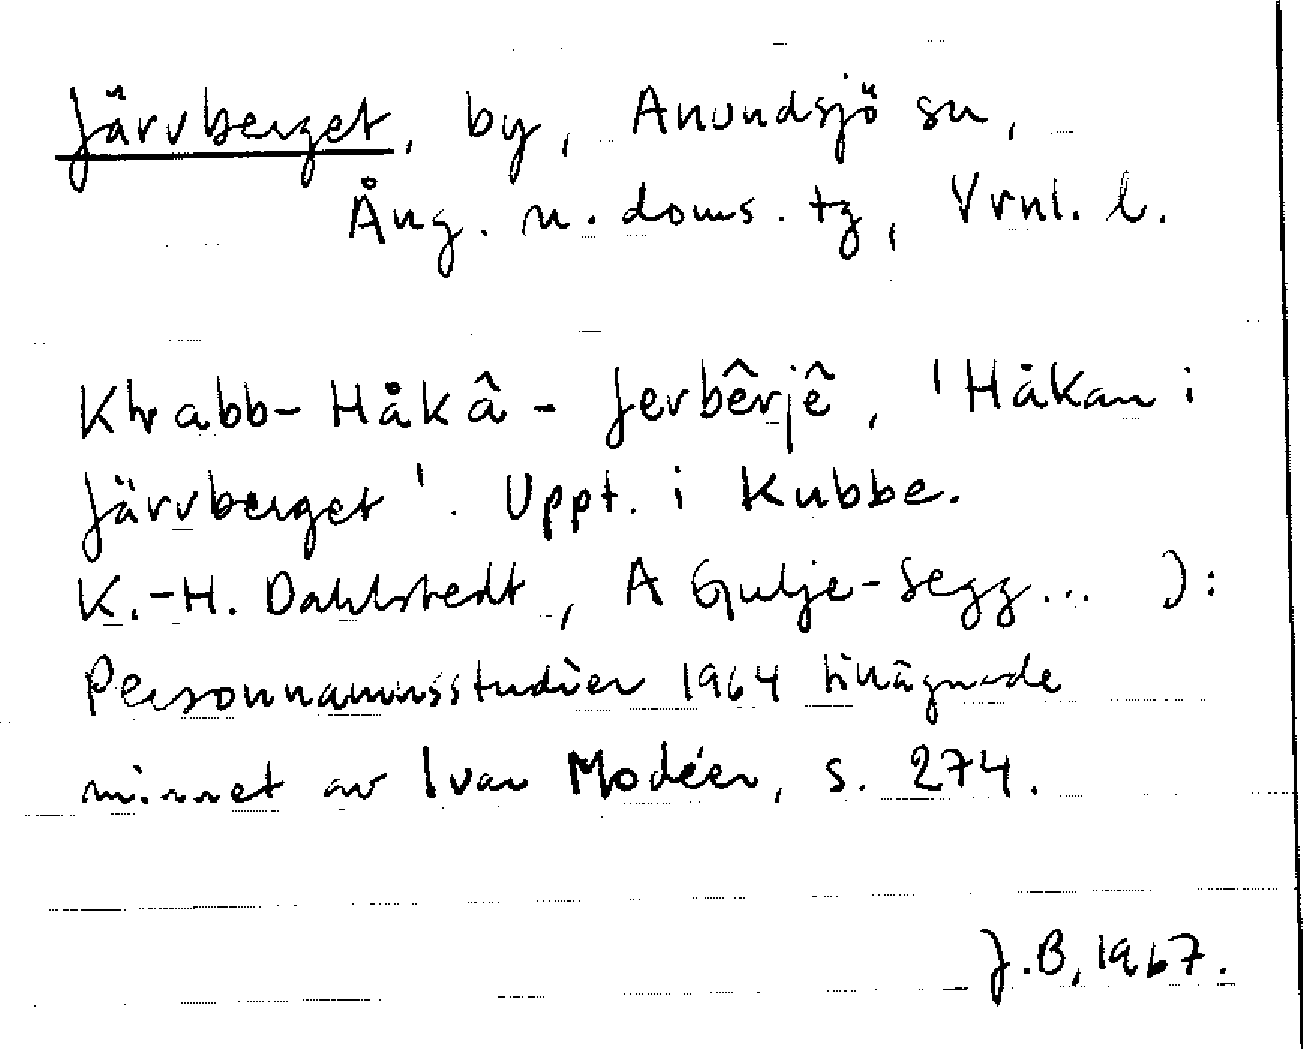 Järvberget, by, Anundsjö sn,
Ång. n. doms. tg, Vrnl. l.
Khrabb-Håkâ-Jerbêrjê, 'Håkan i
Järvberget'. Uppt. i Kubbe.
K.-H. Dahlstedt, A Gulje-Segg... J:
Personnamnsstudier 1964 tillägnade
minnet av Ivar Modéer, s. 274.
J.B, 1967.